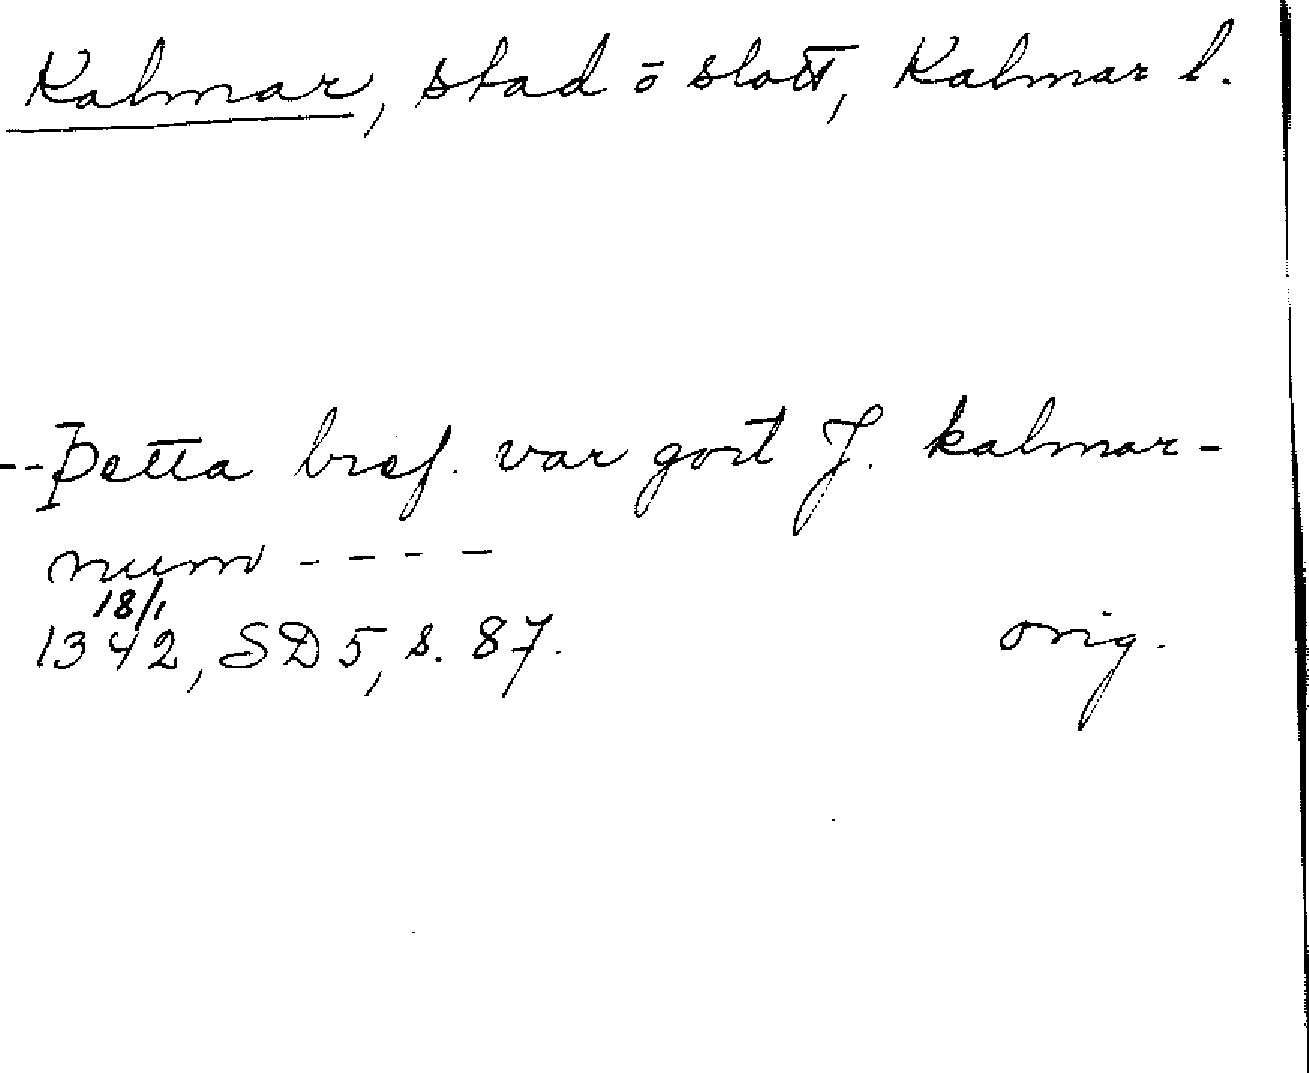 Kalmar, stad o slott, Kalmar l.
--Þetta bref. var gort J. kalmar-
num ----
18/1
1342, SD 5, s. 87. orig.